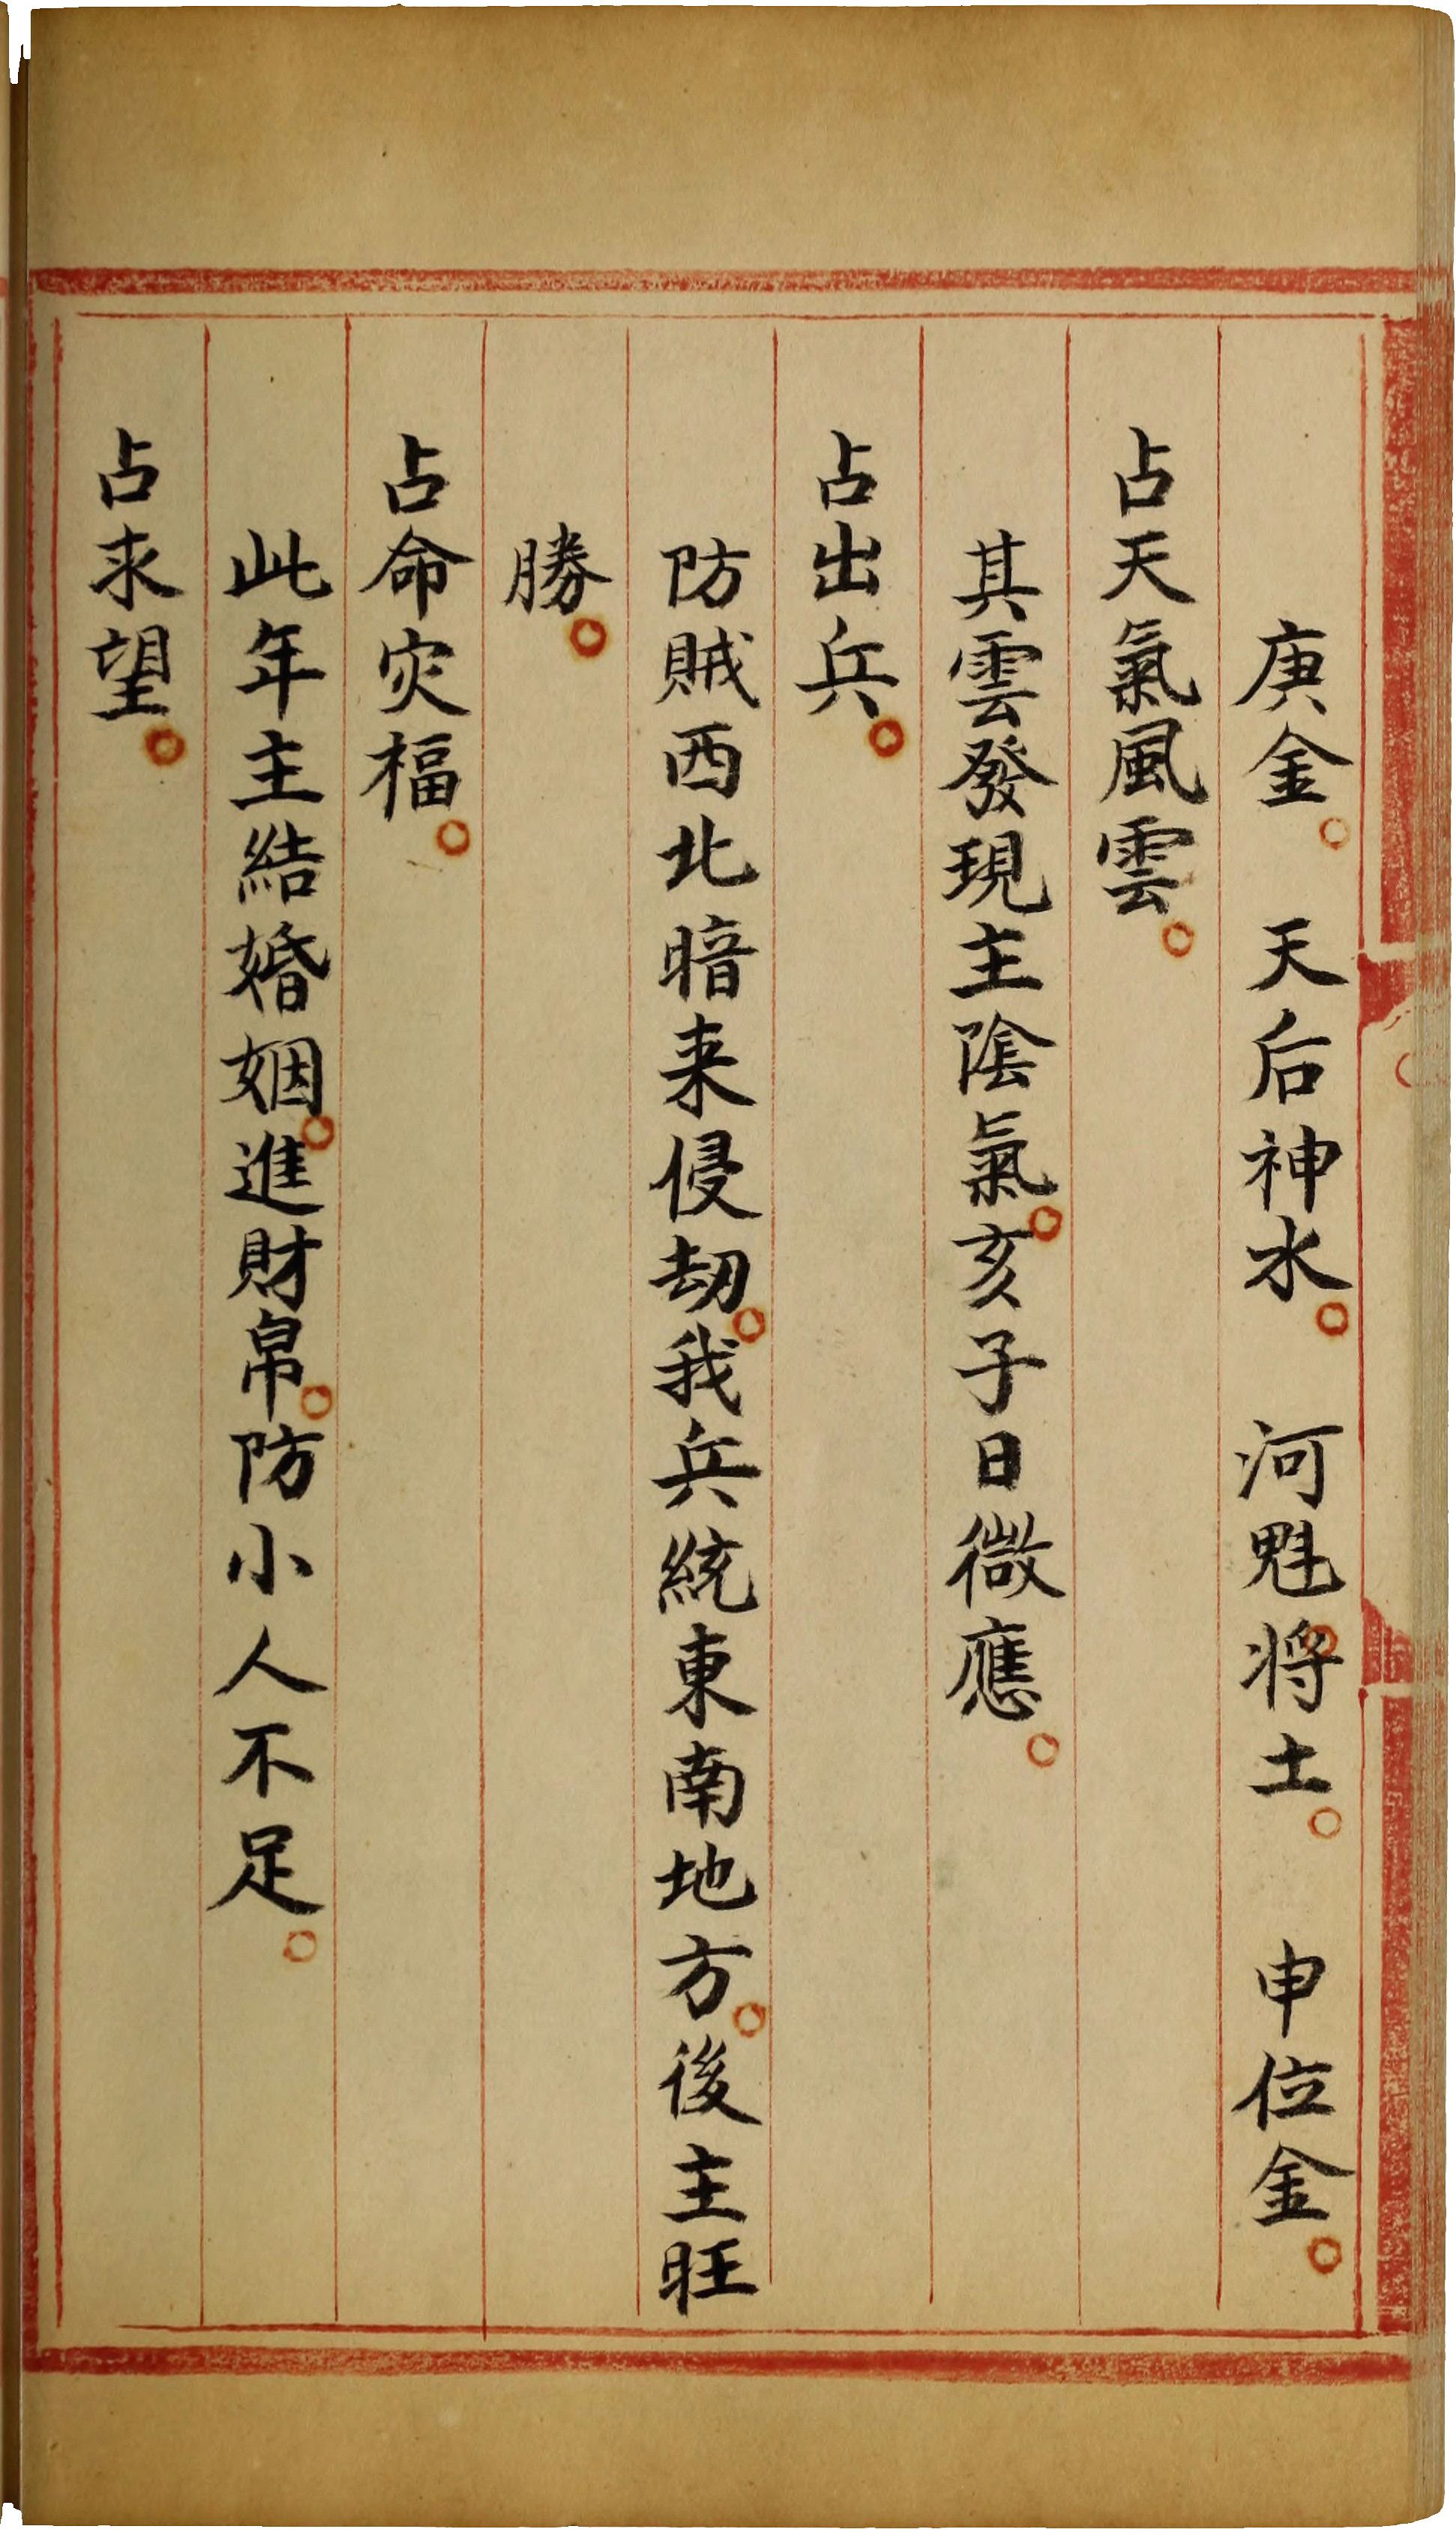 庚金。　天后神水。　河魁。将土。　申位金。
占天氣風雲。
其雲發現主陰氣。亥子日微應。
占出兵。
防賊西北暗来侵刼。我兵統東南地方。後主旺
勝。
占命灾福。
此年主結婚姻。進財帛。防小人不足。
占求望。